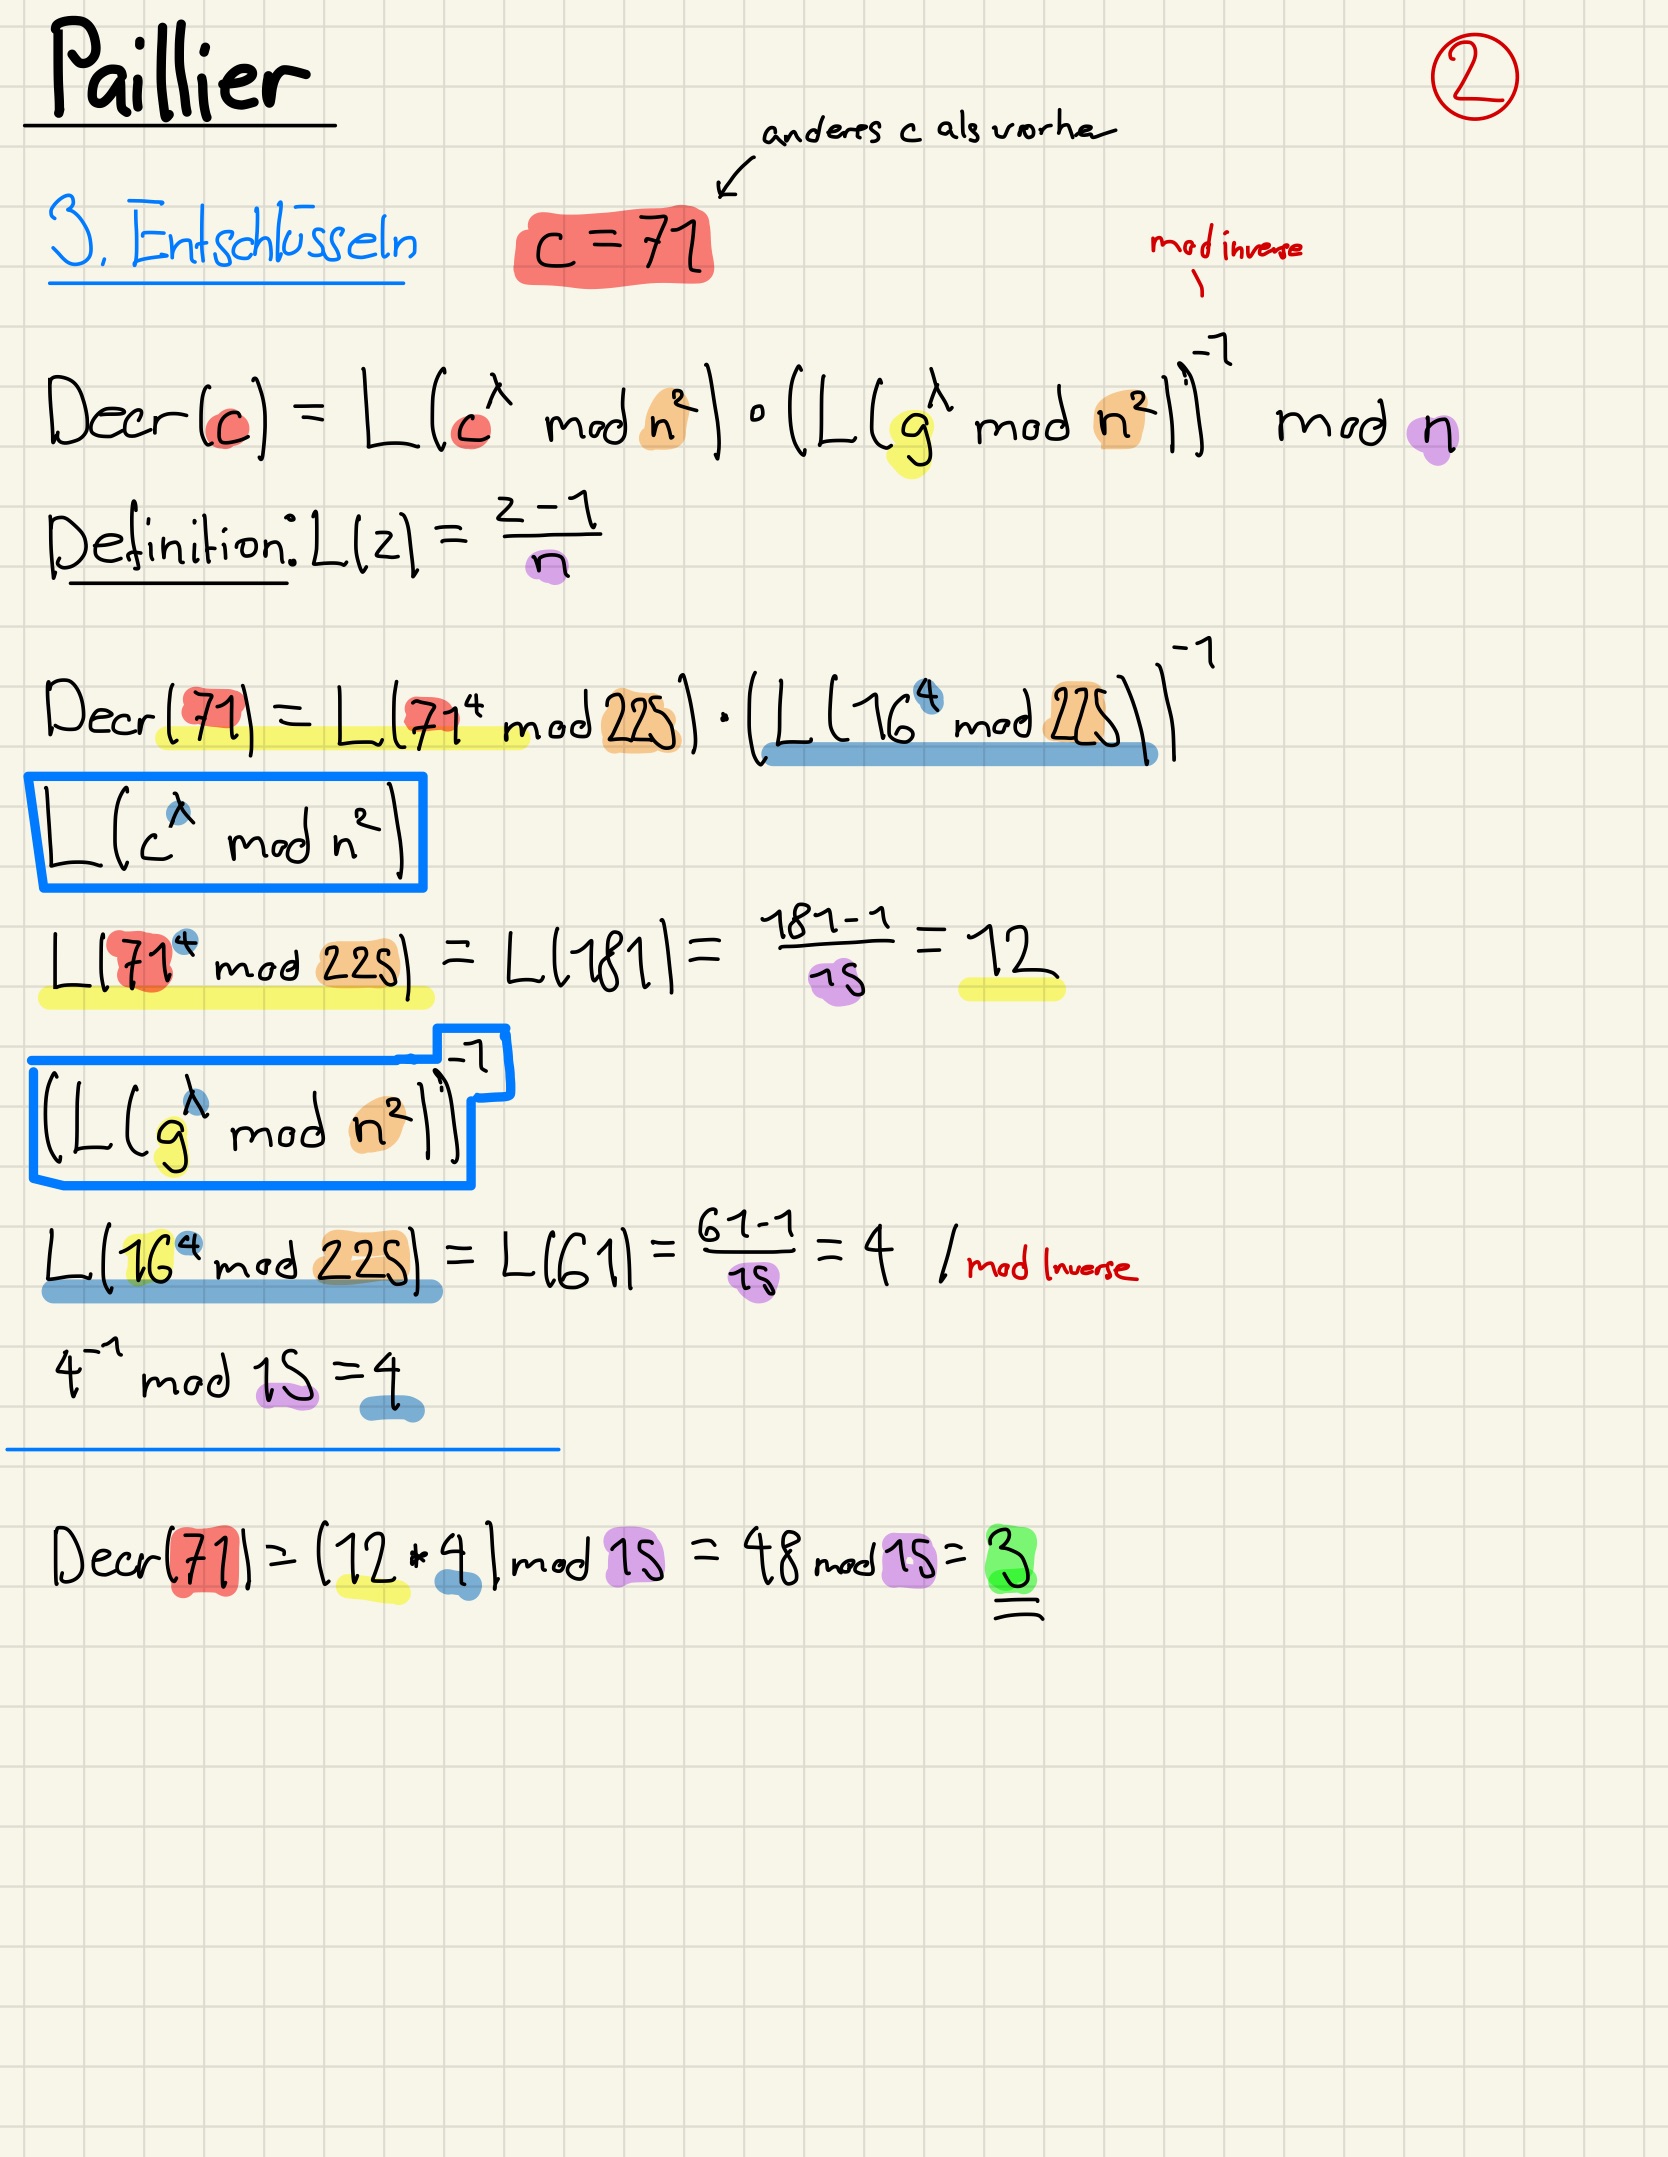 Paillier
2
anderes c als vorher
3. Entschlüsseln c = 71
mod inverse
Decr(c) = L(c^λ mod n²) · (L(g^λ mod n²))⁻¹ mod n
Definition: L(z) = (z-1)/n
Decr(71) = L(71⁴ mod 225) · (L(16⁴ mod 225))⁻¹
L(c^λ mod n²)
L(71⁴ mod 225) = L(181) = (181-1)/15 = 12
(L(g^λ mod n²))⁻¹
L(16⁴ mod 225) = L(61) = (61-1)/15 = 4 / mod Inverse
4⁻¹ mod 15 = 4
Decr(71) = (12 * 4) mod 15 = 48 mod 15 = 3